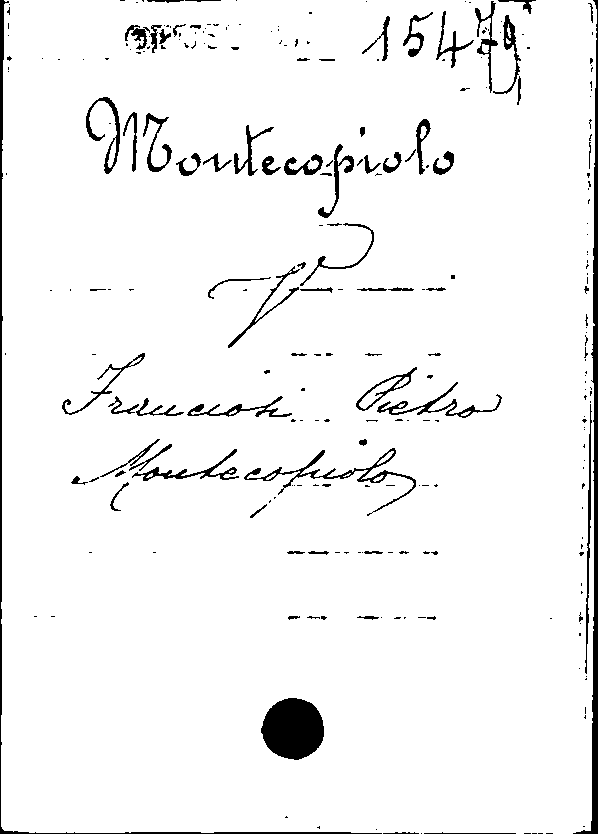 OPUSC 15479
Montecopiolo
V
Franciosi Pietro
Montecopiolo